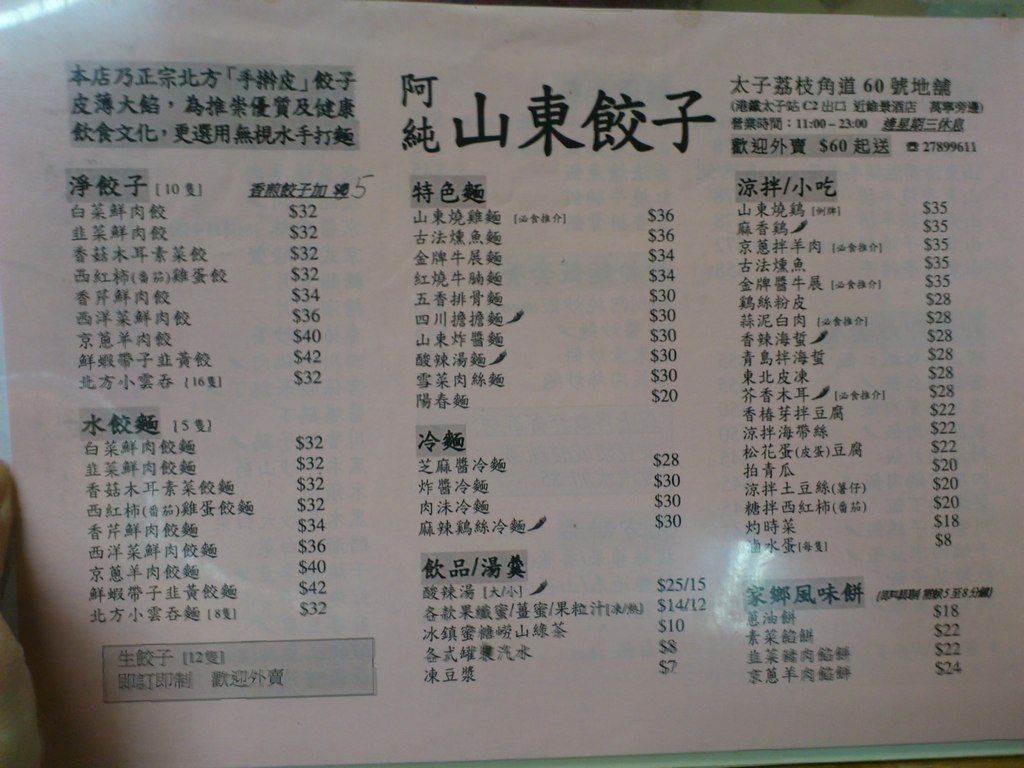 本店乃正宗北方「手擀皮」餃子
皮薄大餡，為推崇優質及健康
飲食文化，更選用無梘水手打麵
阿純 山東餃子
太子荔枝角道 60 號地舖
(港鐵太子站 C2 出口 近維景酒店 萬寧旁邊)
營業時間：11:00 – 23:00 逢星期三休息
歡迎外賣 $60 起送 ☎ 27899611
淨餃子 [10 隻] 香煎餃子加 5
白菜鮮肉餃 $32
韭菜鮮肉餃 $32
香菇木耳素菜餃 $32
西紅柿(番茄)雞蛋餃 $32
香芹鮮肉餃 $34
西洋菜鮮肉餃 $36
京蔥羊肉餃 $40
鮮蝦帶子韭黃餃 $42
北方小雲吞 [16隻] $32
水餃麵 [5 隻]
白菜鮮肉餃麵 $32
韭菜鮮肉餃麵 $32
香菇木耳素菜餃麵 $32
西紅柿(番茄)雞蛋餃麵 $32
香芹鮮肉餃麵 $34
西洋菜鮮肉餃麵 $36
京蔥羊肉餃麵 $40
鮮蝦帶子韭黃餃麵 $42
北方小雲吞麵 [8隻] $32
生餃子 [12隻]
即訂即制 歡迎外賣
特色麵
山東燒雞麵 [必食推介] $36
古法燻魚麵 $36
金牌牛展麵 $34
紅燒牛腩麵 $34
五香排骨麵 $30
四川擔擔麵 $30
山東炸醬麵 $30
酸辣湯麵 $30
雪菜肉絲麵 $30
陽春麵 $20
冷麵
芝麻醬冷麵 $28
炸醬冷麵 $30
肉沬冷麵 $30
麻辣鷄絲冷麵 $30
飲品/湯羹
酸辣湯 [大/小] $25/15
各款果纖蜜/薑蜜/果粒汁[凍/熱] $14/12
冰鎮蜜糖嶗山綠茶 $10
各式罐裝汽水 $8
凍豆漿 $7
涼拌/小吃
山東燒鷄 [例牌] $35
麻香鷄 $35
京蔥拌羊肉 [必食推介] $35
古法燻魚 $35
金牌醬牛展 [必食推介] $35
鷄絲粉皮 $28
蒜泥白肉 [必食推介] $28
香辣海蜇 $28
青島拌海蜇 $28
東北皮凍 $28
芥香木耳 [必食推介] $28
香椿芽拌豆腐 $22
涼拌海帶絲 $22
松花蛋(皮蛋)豆腐 $22
拍青瓜 $20
涼拌土豆絲(薯仔) $20
糖拌西紅柿(番茄) $20
灼時菜 $18
滷水蛋[每隻] $8
家鄉風味餅 5 至 8 分鐘)
蔥油餅 $18
素菜餡餅 $22
韭菜豬肉餡餅 $22
京蔥羊肉餡餅 $24